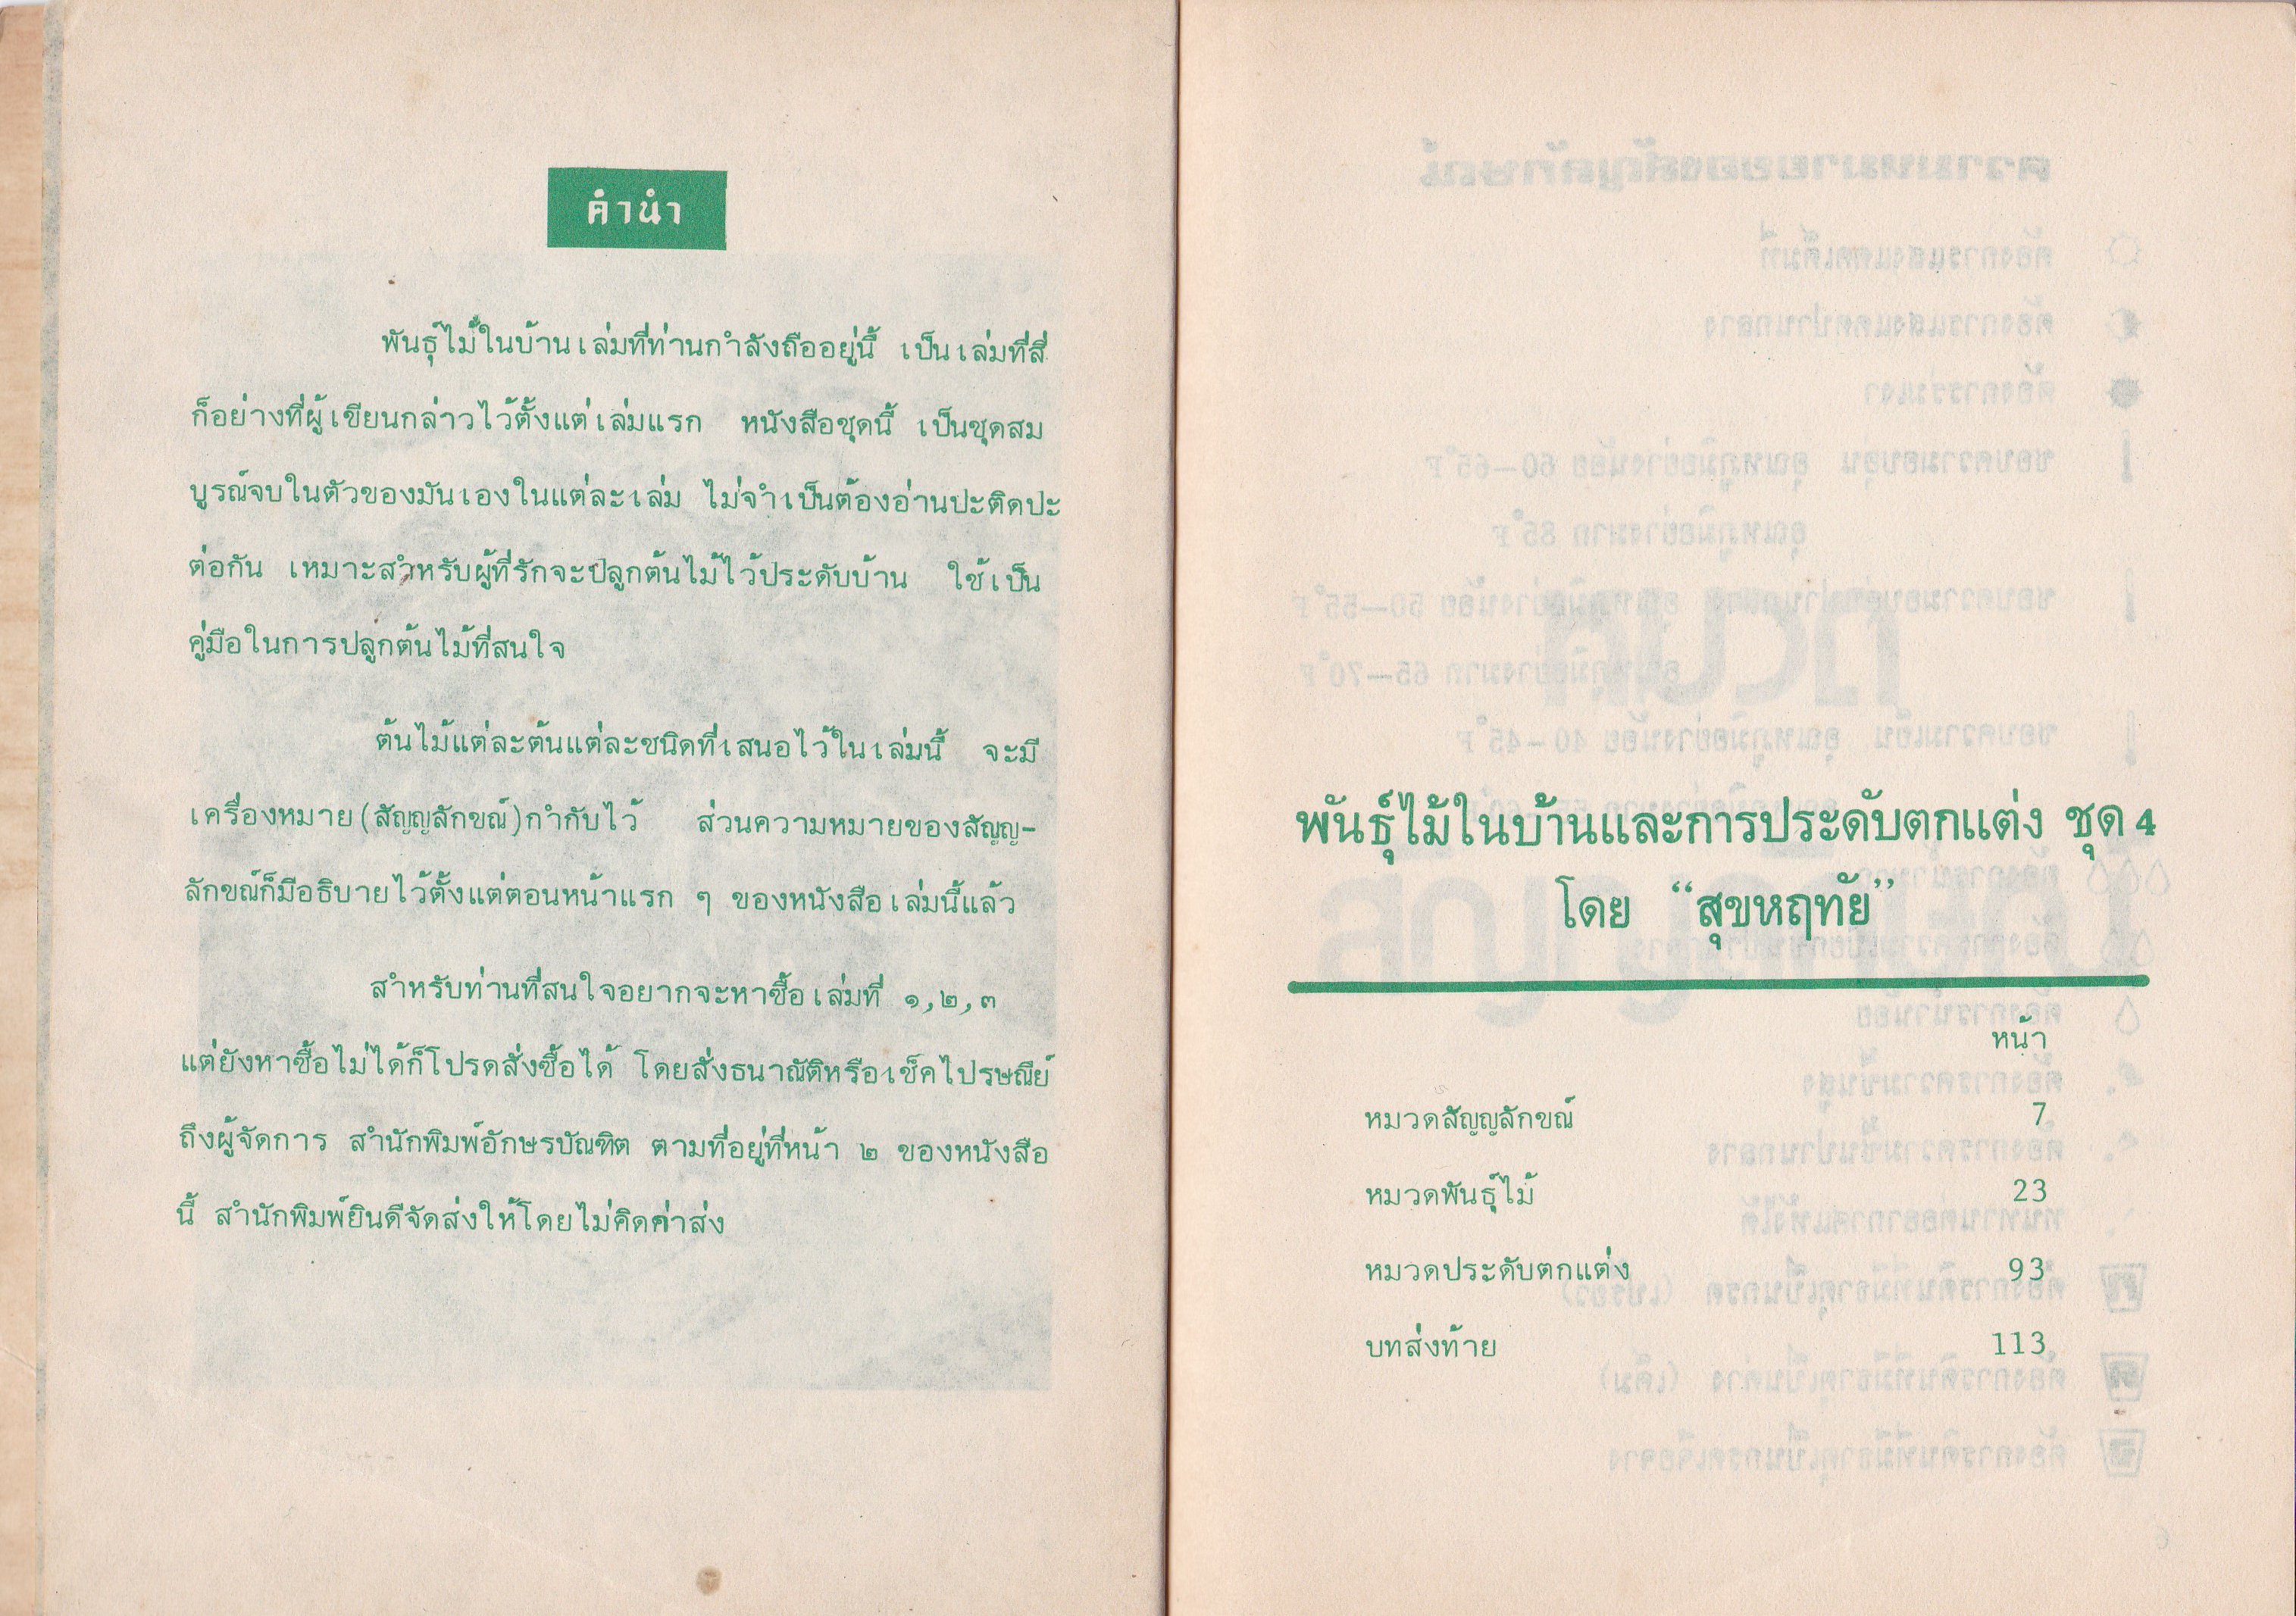 คำนำ
พันธุ์ไม้ในบ้านเล่มที่ท่านกำลังถืออยู่นี้ เป็นเล่มที่สี่
ก็อย่างที่ผู้เขียนกล่าวไว้ตั้งแต่เล่มแรก หนังสือชุดนี้ เป็นชุดสม
บูรณ์จบในตัวของมันเองในแต่ละเล่ม ไม่จำเป็นต้องอ่านปะติดปะ
ต่อกัน เหมาะสำหรับผู้ที่รักจะปลูกต้นไม้ไว้ประดับบ้าน ใช้เป็น
คู่มือในการปลูกต้นไม้ที่สนใจ
ต้นไม้แต่ละต้นแต่ละชนิดที่เสนอไว้ในเล่มนี้ จะมี
เครื่องหมาย(สัญญลักขณ์)กำกับไว้ ส่วนความหมายของสัญญ-
ลักขณ์ก็มีอธิบายไว้ตั้งแต่ตอนหน้าแรก ๆ ของหนังสือเล่มนี้แล้ว
สำหรับท่านที่สนใจอยากจะหาซื้อเล่มที่ ๑,๒,๓
แต่ยังหาซื้อไม่ได้ก็โปรดสั่งซื้อได้ โดยสั่งธนาณัติหรือเช็คไปรษณีย์
ถึงผู้จัดการ สำนักพิมพ์อักษรบัณฑิต ตามที่อยู่ที่หน้า ๒ ของหนังสือ
นี้ สำนักพิมพ์ยินดีจัดส่งให้โดยไม่คิดค่าส่ง
พันธุ์ไม้ในบ้านและการประดับตกแต่ง ชุด 4
โดย “สุขหฤทัย”
หน้า
หมวดสัญญลักขณ์ 7
หมวดพันธุ์ไม้ 23
หมวดประดับตกแต่ง 93
บทส่งท้าย 113